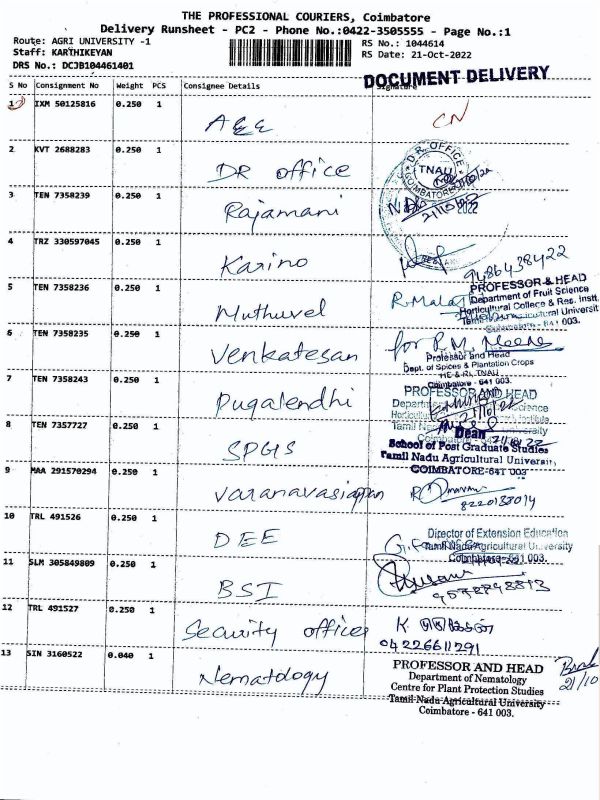 THE PROFESSIONAL COURIERS, Coimbatore
Delivery Runsheet - PC2 - Phone No.:0422-3505555 - Page No.:1
Route: AGRI UNIVERSITY -1
RS No.: 1044614
Staff: KARTHIKEYAN
RS Date: 21-Oct-2022
DRS No.: DCJB104461401
DOCUMENT DELIVERY
S No Consignment No Weight PCS Consignee Details Signature
1 IXM 50125816 0.250 1
AEE CN
2 KVT 2688283 0.250 1
DR office
D.R. OFFICE
TNAU
COIMBATORE
3 TEN 7358239 0.250 1
Rajamani
21/10/2022
4 TRZ 330597045 0.250 1
Karino
9486438422
5 TEN 7358236 0.250 1
Muthuvel
PROFESSOR & HEAD
Department of Fruit Science
Horticultural College & Res. Instt.
641 003.
6 TEN 7358235 0.250 1
Venkatesan for R.M.
Professor and Head
Dept. of Spices & Plantation Crops
HC & RI, TNAU
Coimbatore - 641 003.
7 TEN 7358243 0.250 1
Pugalendhi
PROFESSOR AND HEAD
8 TEN 7357727 0.250 1
SPGS
Dean
School of Post Graduate Studies
Tamil Nadu Agricultural University
COIMBATORE-641 003
9 MAA 291570294 0.250 1
Varanavasiappan
8220183014
10 TRL 491526 0.250 1
DEE
Director of Extension Education
Tamil Nadu Agricultural University
Coimbatore - 641 003.
11 SLM 305849809 0.250 1
BSI
9578898813
12 TRL 491527 0.250 1
Security officer K
04226611291
13 SIN 3160522 0.040 1
Nematology
PROFESSOR AND HEAD
Department of Nematology
Centre for Plant Protection Studies
Tamil Nadu Agricultural University
Coimbatore - 641 003.
21/10